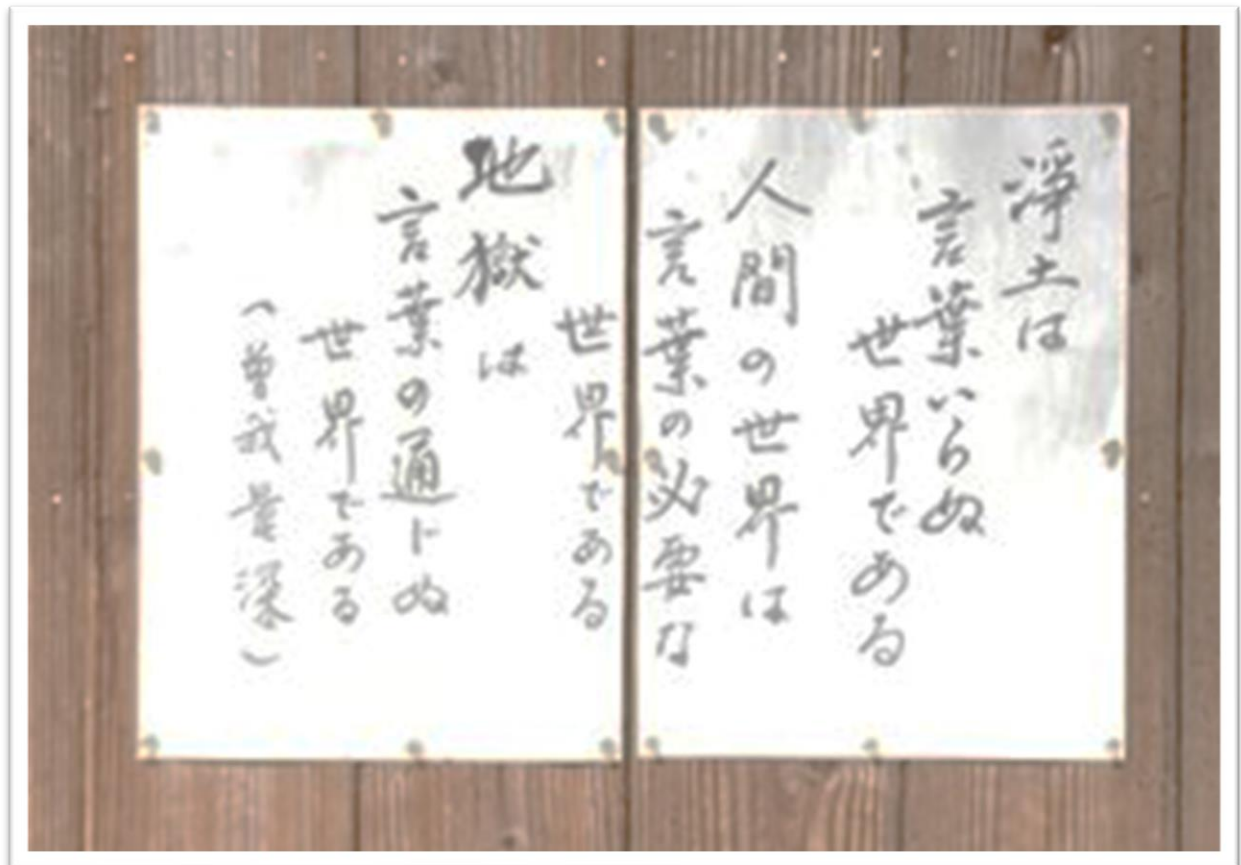 浄土は
言葉いらぬ
世界である
人間の世界は
言葉の必要な
世界である
地獄は
言葉の通じぬ
世界である
（曽我量深）